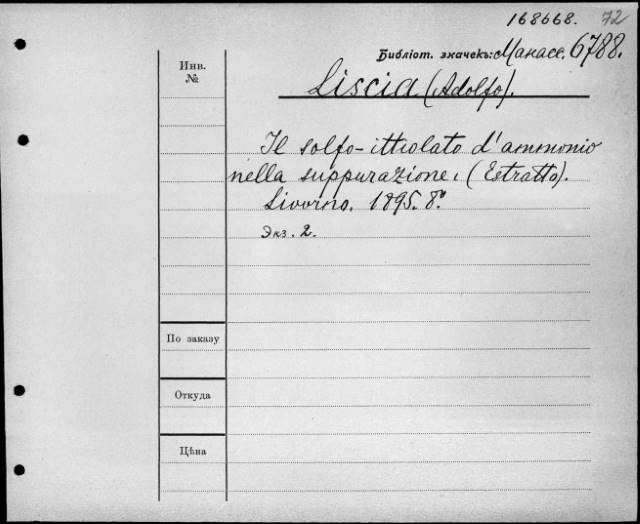 168668. 72
Библіот. значекъ: Манасс. 6788.
Инв.
№
Liscia (Adolfo).
Il solfo-ittiolato d'ammonio
nella suppurazione. (Estratto).
Livorno. 1895. 8º
Экз. 2.
По заказу
Откуда
Цѣна